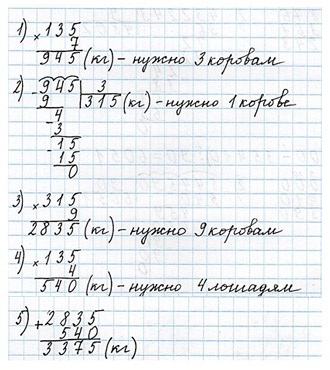 1) × 135
7
945 (кг) - нужно 3 коровам
2) - 945 | 3
9 | 315 (кг) - нужно 1 корове
- 4
3
- 15
15
0
3) × 315
9
2835 (кг) - нужно 9 коровам
4) × 135
4
540 (кг) - нужно 4 лошадям
5) + 2835
540
3375 (кг)